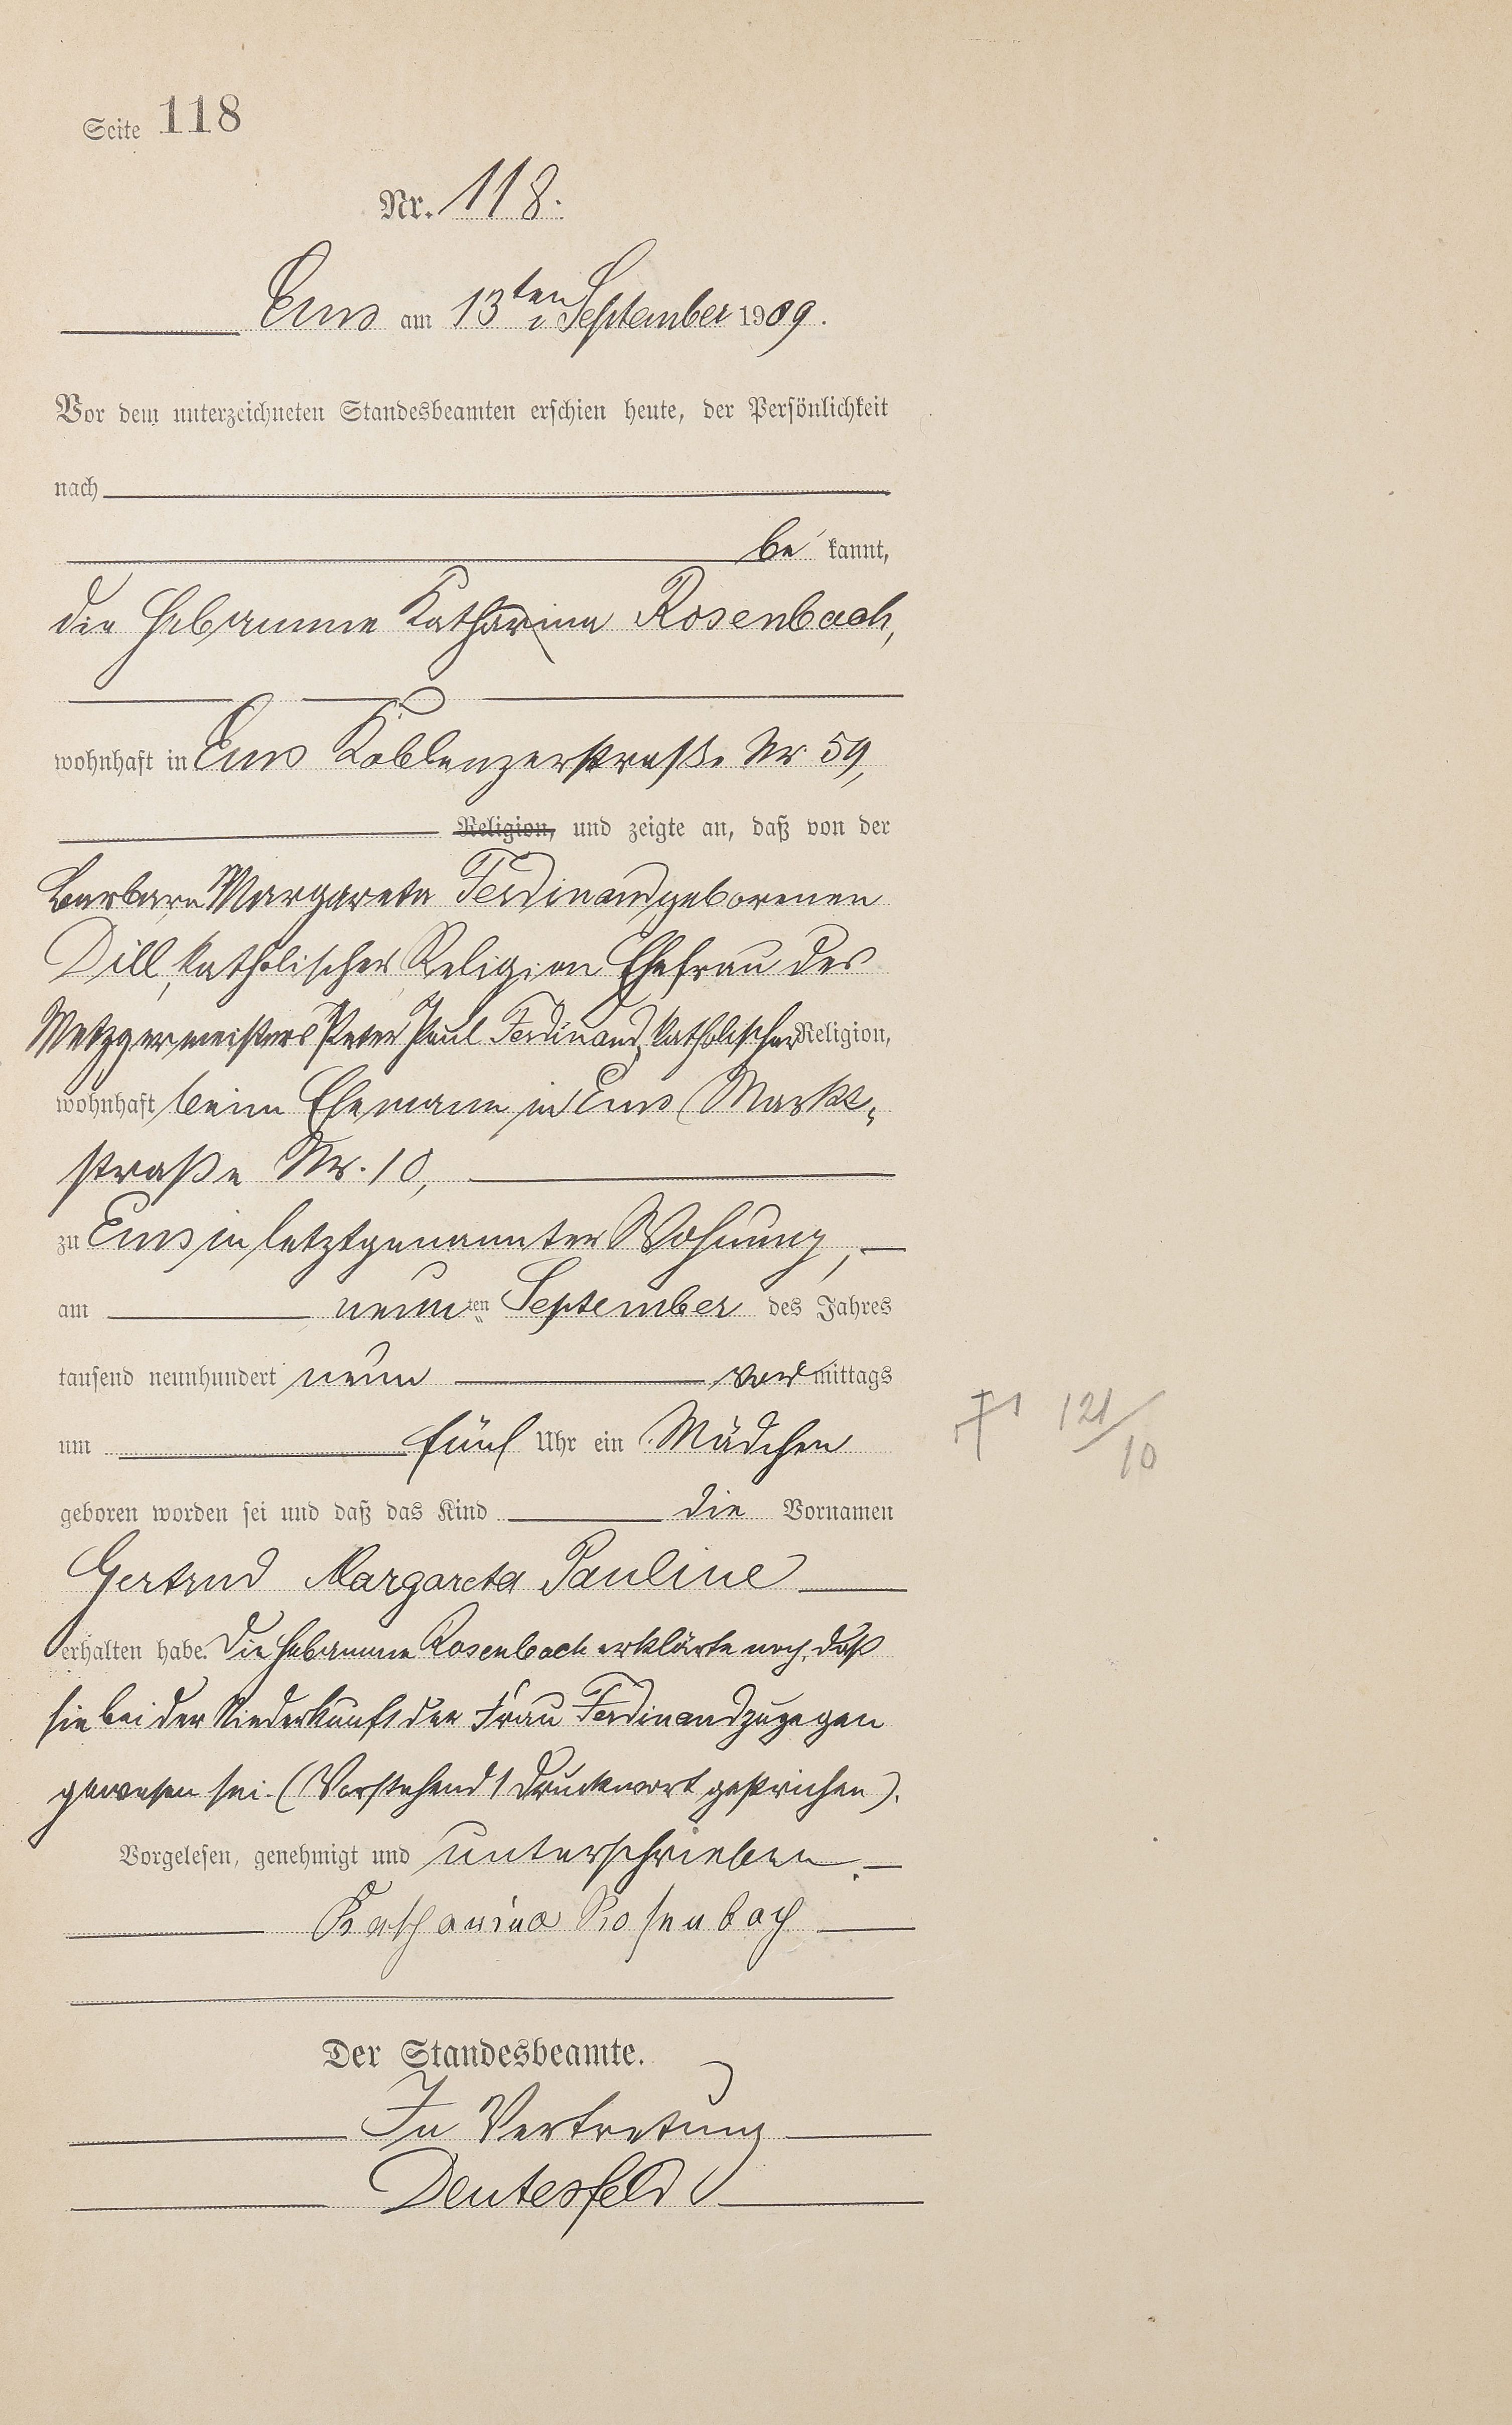 Seite 118
Nr. 118.
Ems am 13ten September 1909.
Vor dem unterzeichneten Standesbeamten erschien heute, der Persönlichkeit
nach
be kannt,
die Hebamme Katharina Rosenbach,
wohnhaft in Ems Koblenzerstraße Nr 59,
Religion, und zeigte an, daß von der
Barbara Margareta Ferdinand geborenen
Dill, katholischer Religion Ehefrau des
Metzgermeisters Peter Paul Ferdinand, katholischer Religion,
wohnhaft beim Ehemann in Ems Markt-
straße Nr. 10,
zu Ems in letztgenannter Wohnung,
am neunten September des Jahres
tausend neunhundert neun vormittags
um fünf Uhr ein Mädchen
geboren worden sei und daß das Kind die Vornamen
Gertrud Margareta Pauline
erhalten habe. Die Hebamme Rosenbach erklärte noch, daß
sie bei der Niederkunft der Frau Ferdinand zugegen
gewesen sei. (Vorstehend 1 Druckwort gestrichen).
Vorgelesen, genehmigt und unterschrieben.
Katharina Rosenbach
Der Standesbeamte.
In Vertretung
Deutesfeld
† 121/10